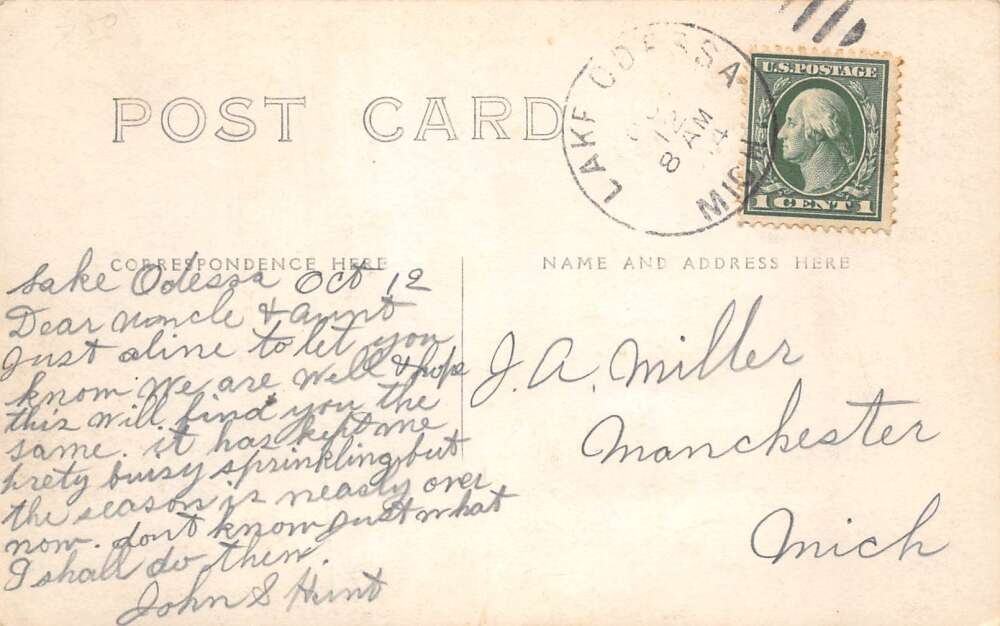 POST CARD
LAKE ODESSA
12
8 AM
MICH
U.S. POSTAGE
1 CENT 1
CORRESPONDENCE HERE
NAME AND ADDRESS HERE
Lake Odessa Oct 12
Dear Uncle & Aunt
Just a line to let you
know we are well & hope
this will find you the
same. it has kept me
prety buisy sprinkling but
the season is neasly over
now. dont know just what
I shall do then.
John S Hunt
J. A. Miller
Manchester
Mich